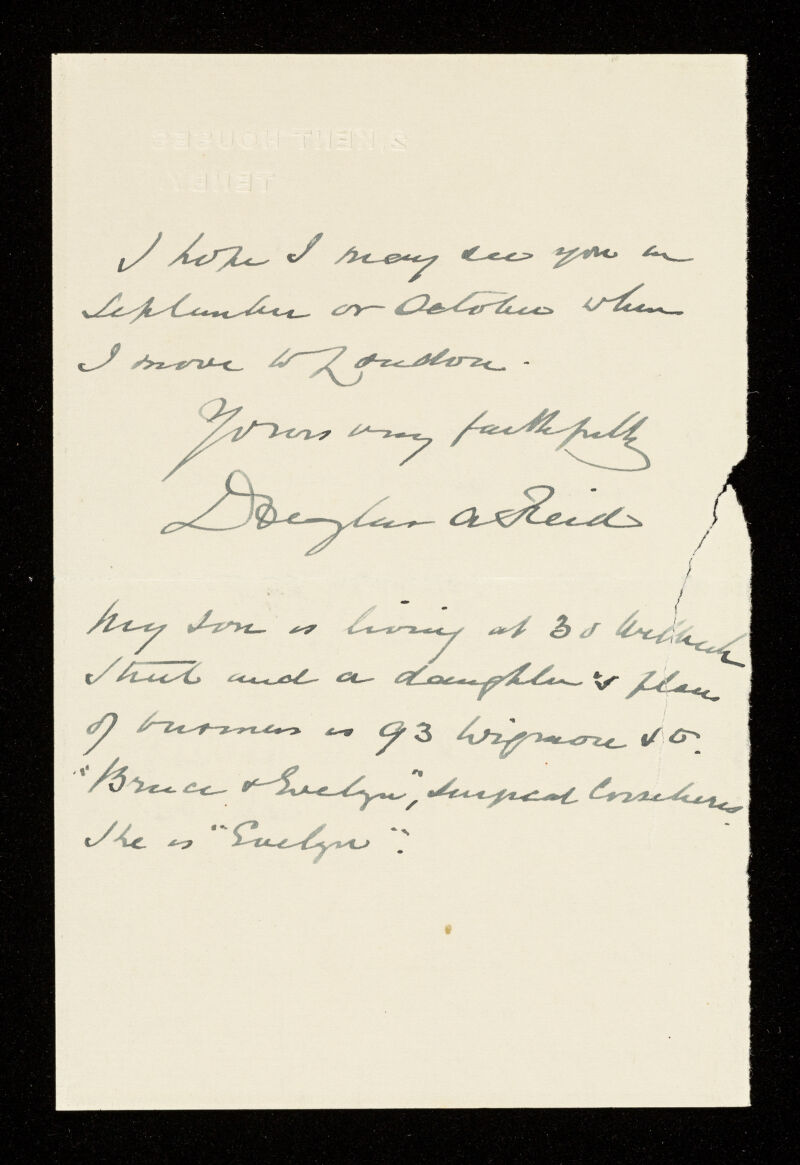 2, KENT HOUSES
TENBY.
I hope I may see you in
September or October when
I move to London.
Yours very faithfully
Douglas A Reid
My son is living at 30 Welbeck
Street and a daughter's place
of business is 93 Wigmore St.
"Bruce & Evelyn", Surgical Corsetieres
She is "Evelyn".